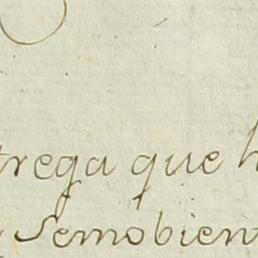 trega que h
Semobien